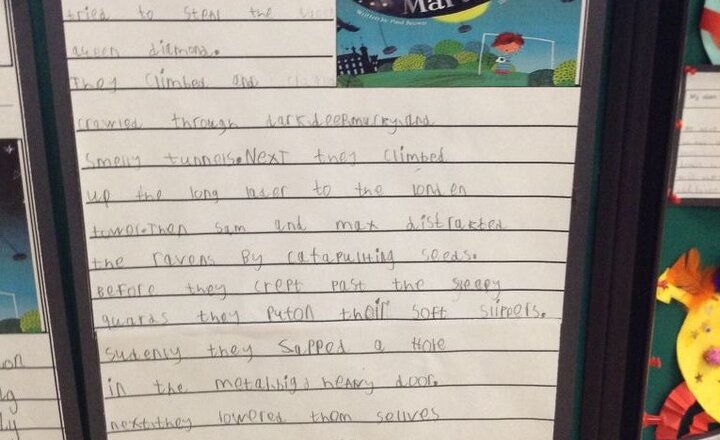 Mar
Written by Paul Bowman
tried to steal the
queen diamond.
They climbed and
crawled through dark,deep,murky,and
smelly tunnels.Next they climbed
up the long lader to the londen
tower.Then sam and max distrakted
the ravens By catapulting seeds.
Before they crept past the sleepy
guards they puton their soft slippers.
sudenly they sapped a Hole
in the metal,big,heavy door.
next,they lowered them selives
My
on
lg
ly